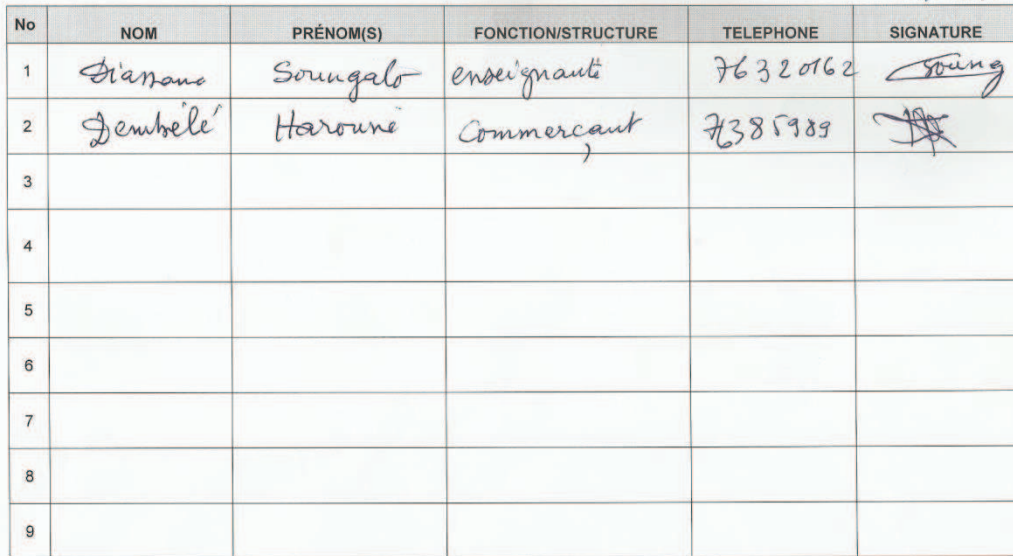 No NOM PRÉNOM(S) FONCTION/STRUCTURE TELEPHONE SIGNATURE
1 Diassana Soungalo enseignante 76320162 Soung
2 Dembélé Harouna Commerçant 7385989
3
4
5
6
7
8
9